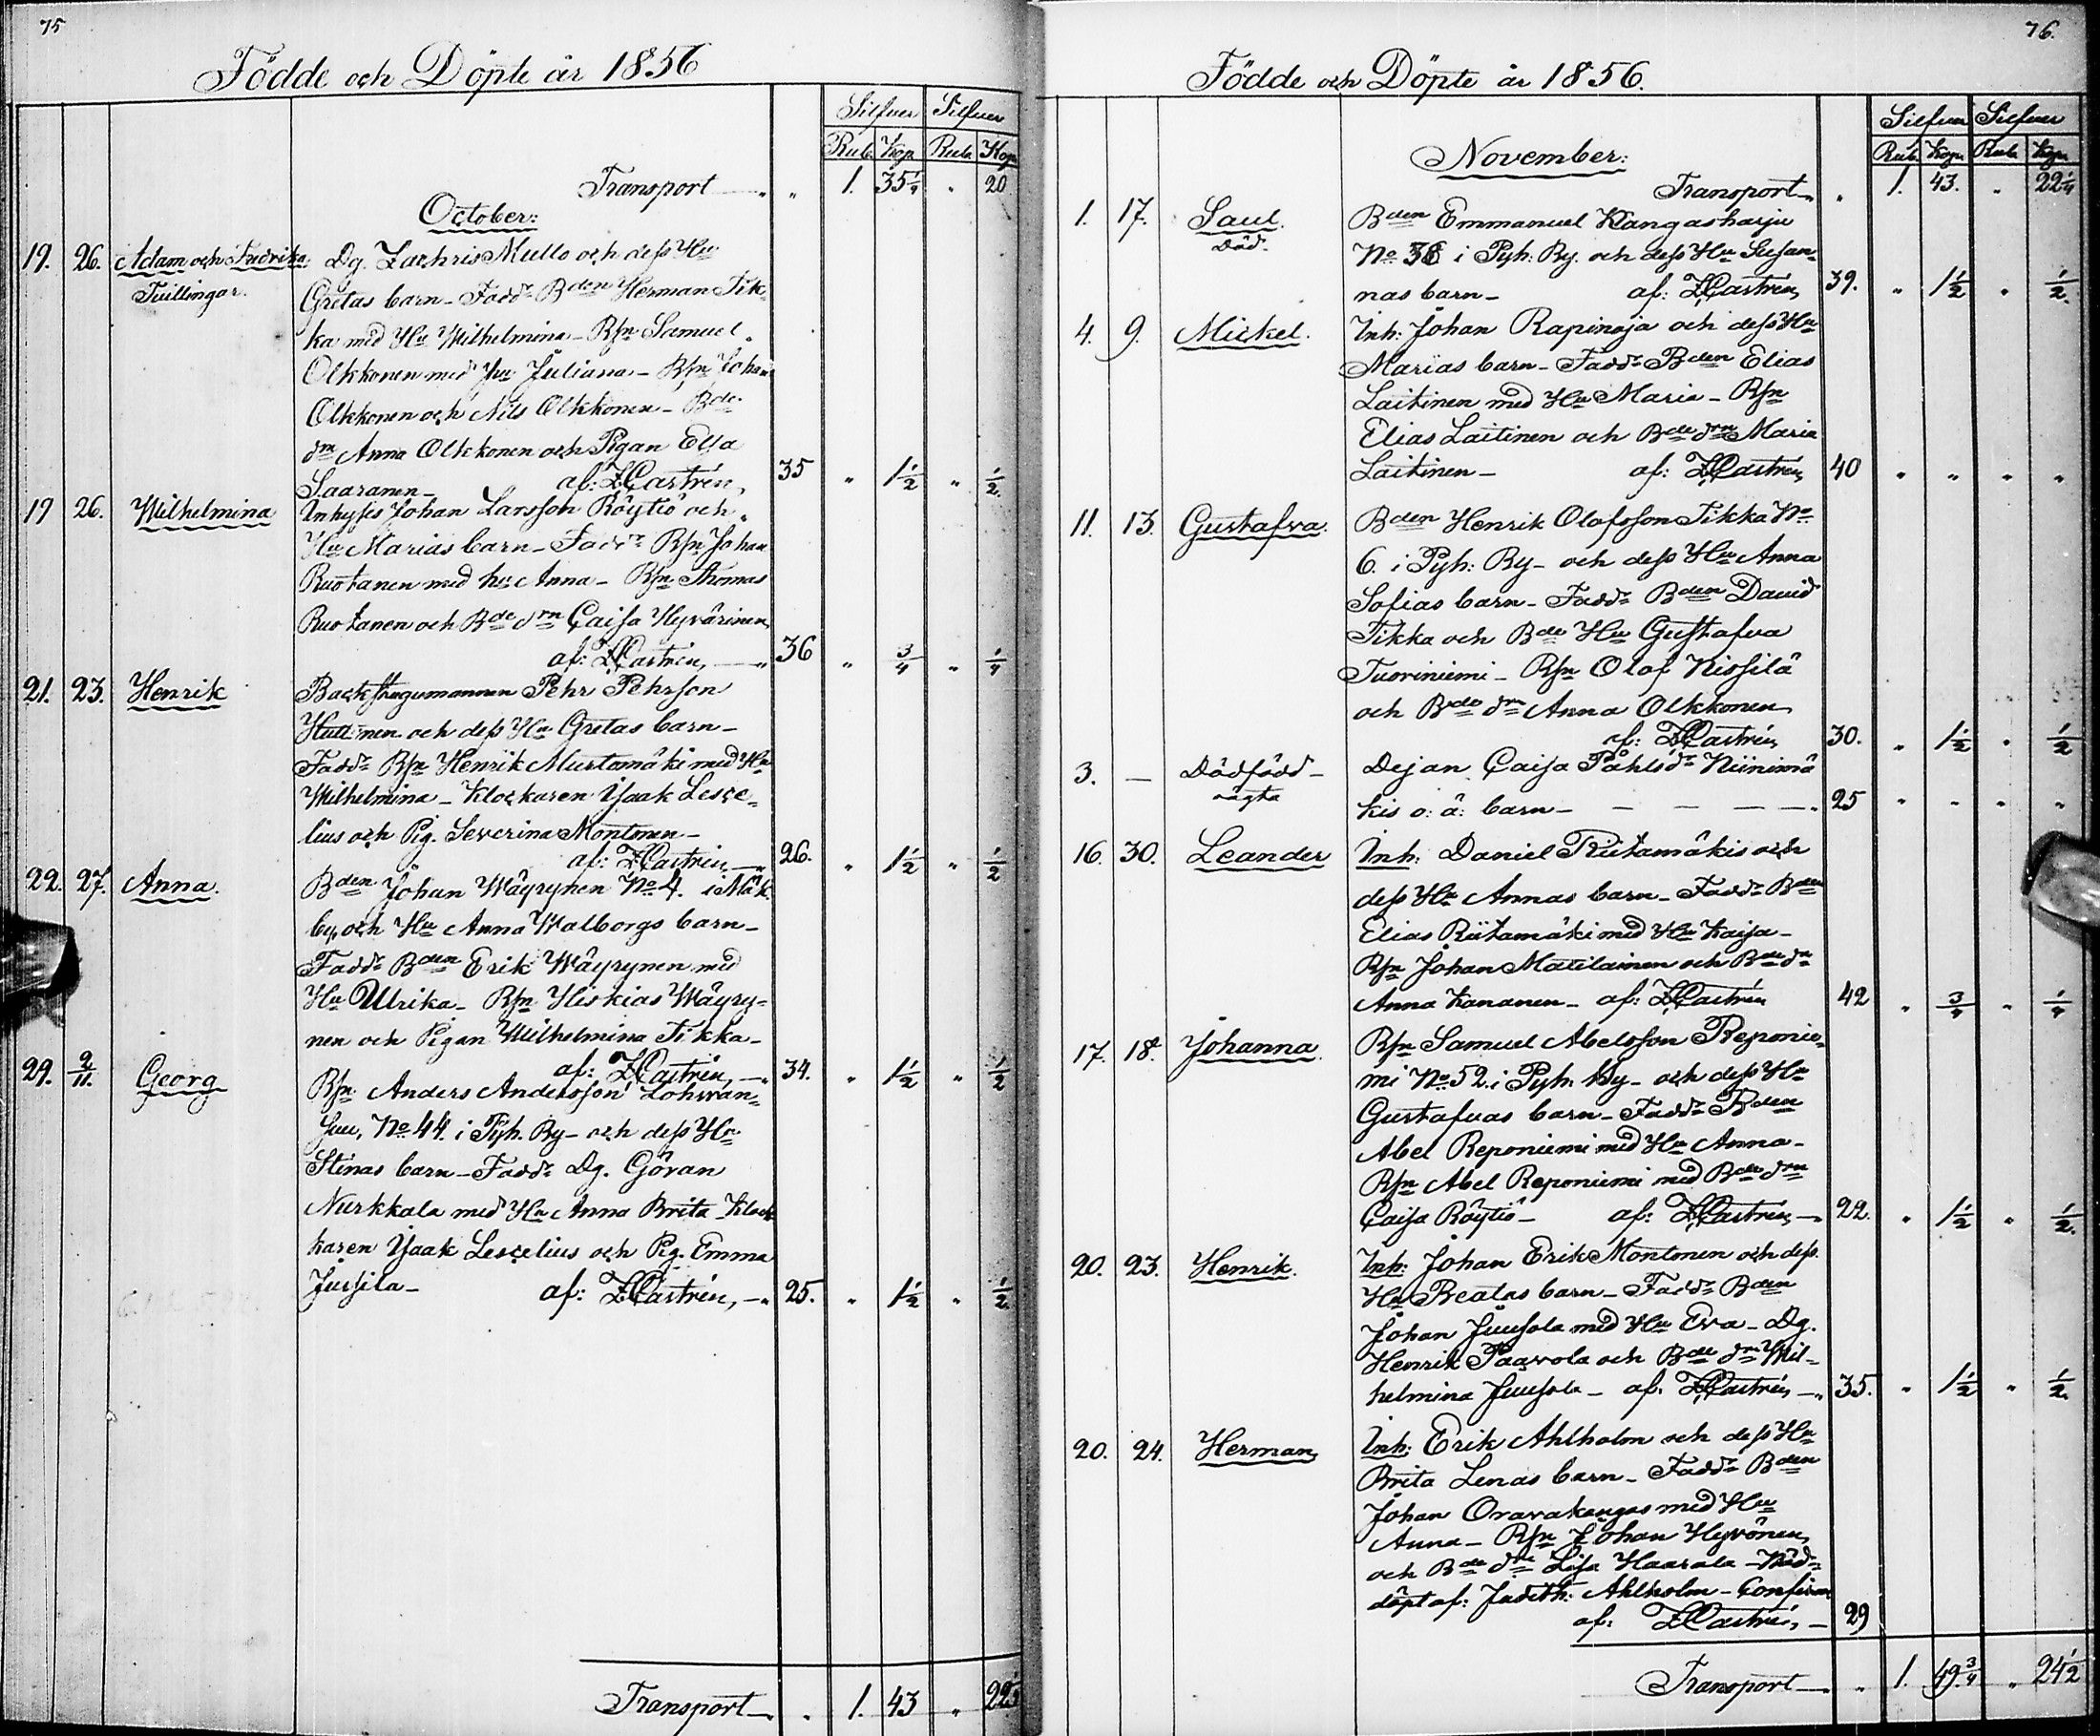 75
Födde och Döpte år 1856
Silfver Silfver
Rub. Kop. Rub. Kop.
Transport — „ 1. 35 1/4 „ 20
October:
19. 26. Adam och Fredrika Dg. Zachris Mullo och dess Hu
Tvillingar. Gretas barn — Fadd. Bden Herman Tik-
ka med Hu Wilhelmina — Rfn Samuel
Olkkonen med Hu Juliana — Rfn Johan
Olkkonen och Nils Olkkonen — Bde
drn Anna Olkkonen och Pigan Elsa
Saaranen — af: ZCastrén, 35 „ 1 1/2 „ 1/2.
19 26. Wilhelmina Inhyses Johan Larsson Röytiö och
Hu Marias barn — Fadd. Rfn Johan
Ruotanen med hu Anna — Rfn Thomas
Ruotanen och Bde drn Caisa Hyvärinen
af: ZCastrén, — 36 „ 3/4 „ 1/4
21. 23. Henrik Backstugumannen Pehr Pehrson
Huttunen och dess Hu Gretas barn —
Fadd. Rfn Henrik Murtomäki med Hu
Wilhelmina — Klockaren Isaak Lesce-
lius och Pig. Severina Montonen —
af: ZCastrén, — 26. „ 1 1/2 „ 1/2
22. 27. Anna. Bden Johan Wäyrynen No 4. i Mäk.
by, och Hu Anna Walborgs barn —
Fadd. Bden Erik Wäyrynen med
Hu Ulrika — Rfn Hiskias Wäyry-
nen och Pigan Wilhelmina Tikka —
af: ZCastrén, — 34. „ 1 1/2 „ 1/2
29. 2/11. Georg Rfn Anders Andersson Lohvan-
suu, No 44. i Pyh. By — och dess Hu
Stinas barn — Fadd. Dg. Göran
Nurkkala med Hu Anna Brita — Kloc-
karen Isaak Lescelius och Pig. Emma
Jussila — af: ZCastrén, — 25. „ 1 1/2 „ 1/2
Transport — „ 1. 43 „
76.
Födde och Döpte år 1856.
Silfver Silfver
Rub. Kop. Rub. Kop.
November:
Transport „ 1. 43. „ 22 1/4
1. 17. Saul. Bden Emmanuel Kangasharju
Död. No 38 i Pyh: By. och dess Hu Susan-
nas barn — af: ZCastrén, 39. „ 1 1/2 „ 1/2.
4. 9. Mickel. Inh: Johan Rapinoja och dess Hu
Marias barn — Fadd. Bden Elias
Laitinen med Hu Maria — Rfn
Elias Laitinen och Bde drn Maria
Laitinen — af: ZCastrén, 40 „ „ „ „
11. 13. Gustafva. Bden Henrik Olofsson Tikka No
6. i Pyh: By — och dess Hu Anna
Sofias barn — Fadd. Bden David
Tikka och Bde Hu Gustafva
Tuoriniemi — Rfn Olof Nissilä
och Bde drn Anna Olkkonen
af: ZCastrén, 30. „ 1 1/2 „ 1/2
3. — Dödfödd — Dejan Caisa Påhlsdr Niinimä
oägta kis o: ä: barn — — — — 25 „ „ „ „
16. 30. Leander Inh: Daniel Riitamäkis och
dess Hu Annas barn — Fadd. Bden
Elias Riitamäki med Hu Kaisa —
Rfn Johan Matilainen och Bde dr
Anna Kananen — af: ZCastrén 42 „ 3/4 „ 1/4
17. 18. Johanna. Rfn Samuel Abelsson Reponie-
mi No 52. i Pyh: By — och dess Hu
Gustafvas barn — Fadd. Bden
Abel Reponiemi med Hu Anna —
Rfn Abel Reponiemi med Bde drn
Caisa Röytiö — af: ZCastrén, — 22. „ 1 1/2 „ 1/2.
20. 23. Henrik. Inh: Johan Erik Montonen och dess
Hu Beatas barn — Fadd. Bden
Johan Juusola med Hu Eva — Dg.
Henrik Paavola och Bde drn Wil-
helmina Juusola — af. ZCastrén, — 35. „ 1 1/2 „ 1/2.
20. 24. Herman, Inh: Erik Ahlholm och dess Hu
Brita Lenas barn — Fadd. Bden
Johan Oravakangas med Hu
Anna — Rfn Johan Hyvönen,
och Bde drn Lisa Haarala — Nöd-
döpt af: Judith: Ahlholm — Confirm
af: ZCastrén, — 29
Transport — „ 1. 49 3/4 „ 24 1/2